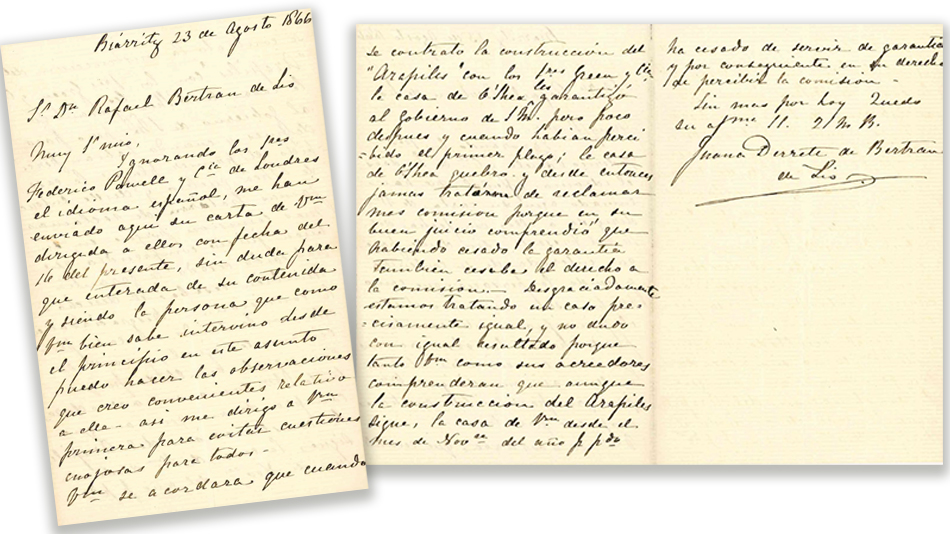 Biárritz 23 de Agosto 1866
Sr Dn Rafael Bertran de Lis
Muy Sr mio,
Ignorando los Sres
Federico Powell y Cia de Londres
el idioma español, me han
enviado aqui su carta de Vm
dirigida a ellos con fecha del
16 del presente, sin duda para
que enterada de su contenido
y siendo la persona que como
Vm bien sabe intervino desde
el principio en este asunto
puedo hacer las observaciones
que creo convenientes relativo
a ella - asi me dirigo a Vm
primera para evitar cuestiones
enojosas para todos -
Vm se acordara que cuando
se contrato la construcción del
"Arapiles" con los Sres Green y Cia
la casa de O'Shea les garantizó
al gobierno de S.M. pero poco
despues y cuando habian perci
=bido el primer plazo; la casa
de O'Shea quebro y desde entonces
jamas trataron de reclamar
mas comision porque en su
buen juicio comprendió que
habiendo cesado la garantia
tambien cesaba el derecho a
la comision. - Desgraciadamente
estamos tratando un caso pre
=cisamente igual, y no dudo
con igual resultado porque
tanto Vm como sus acreedores
comprenderan que aunque
la construccion del Arapiles
sigue, la casa de Vm desde el
mes de Novre del año p. pdo
ha cesado de servir de garantia
y por consequiente en su derecho
de percibir la comisión -
Sin mas por hoy quedo
su afma S.S. Q B S M
Juana Derrete de Bertran
de Lis